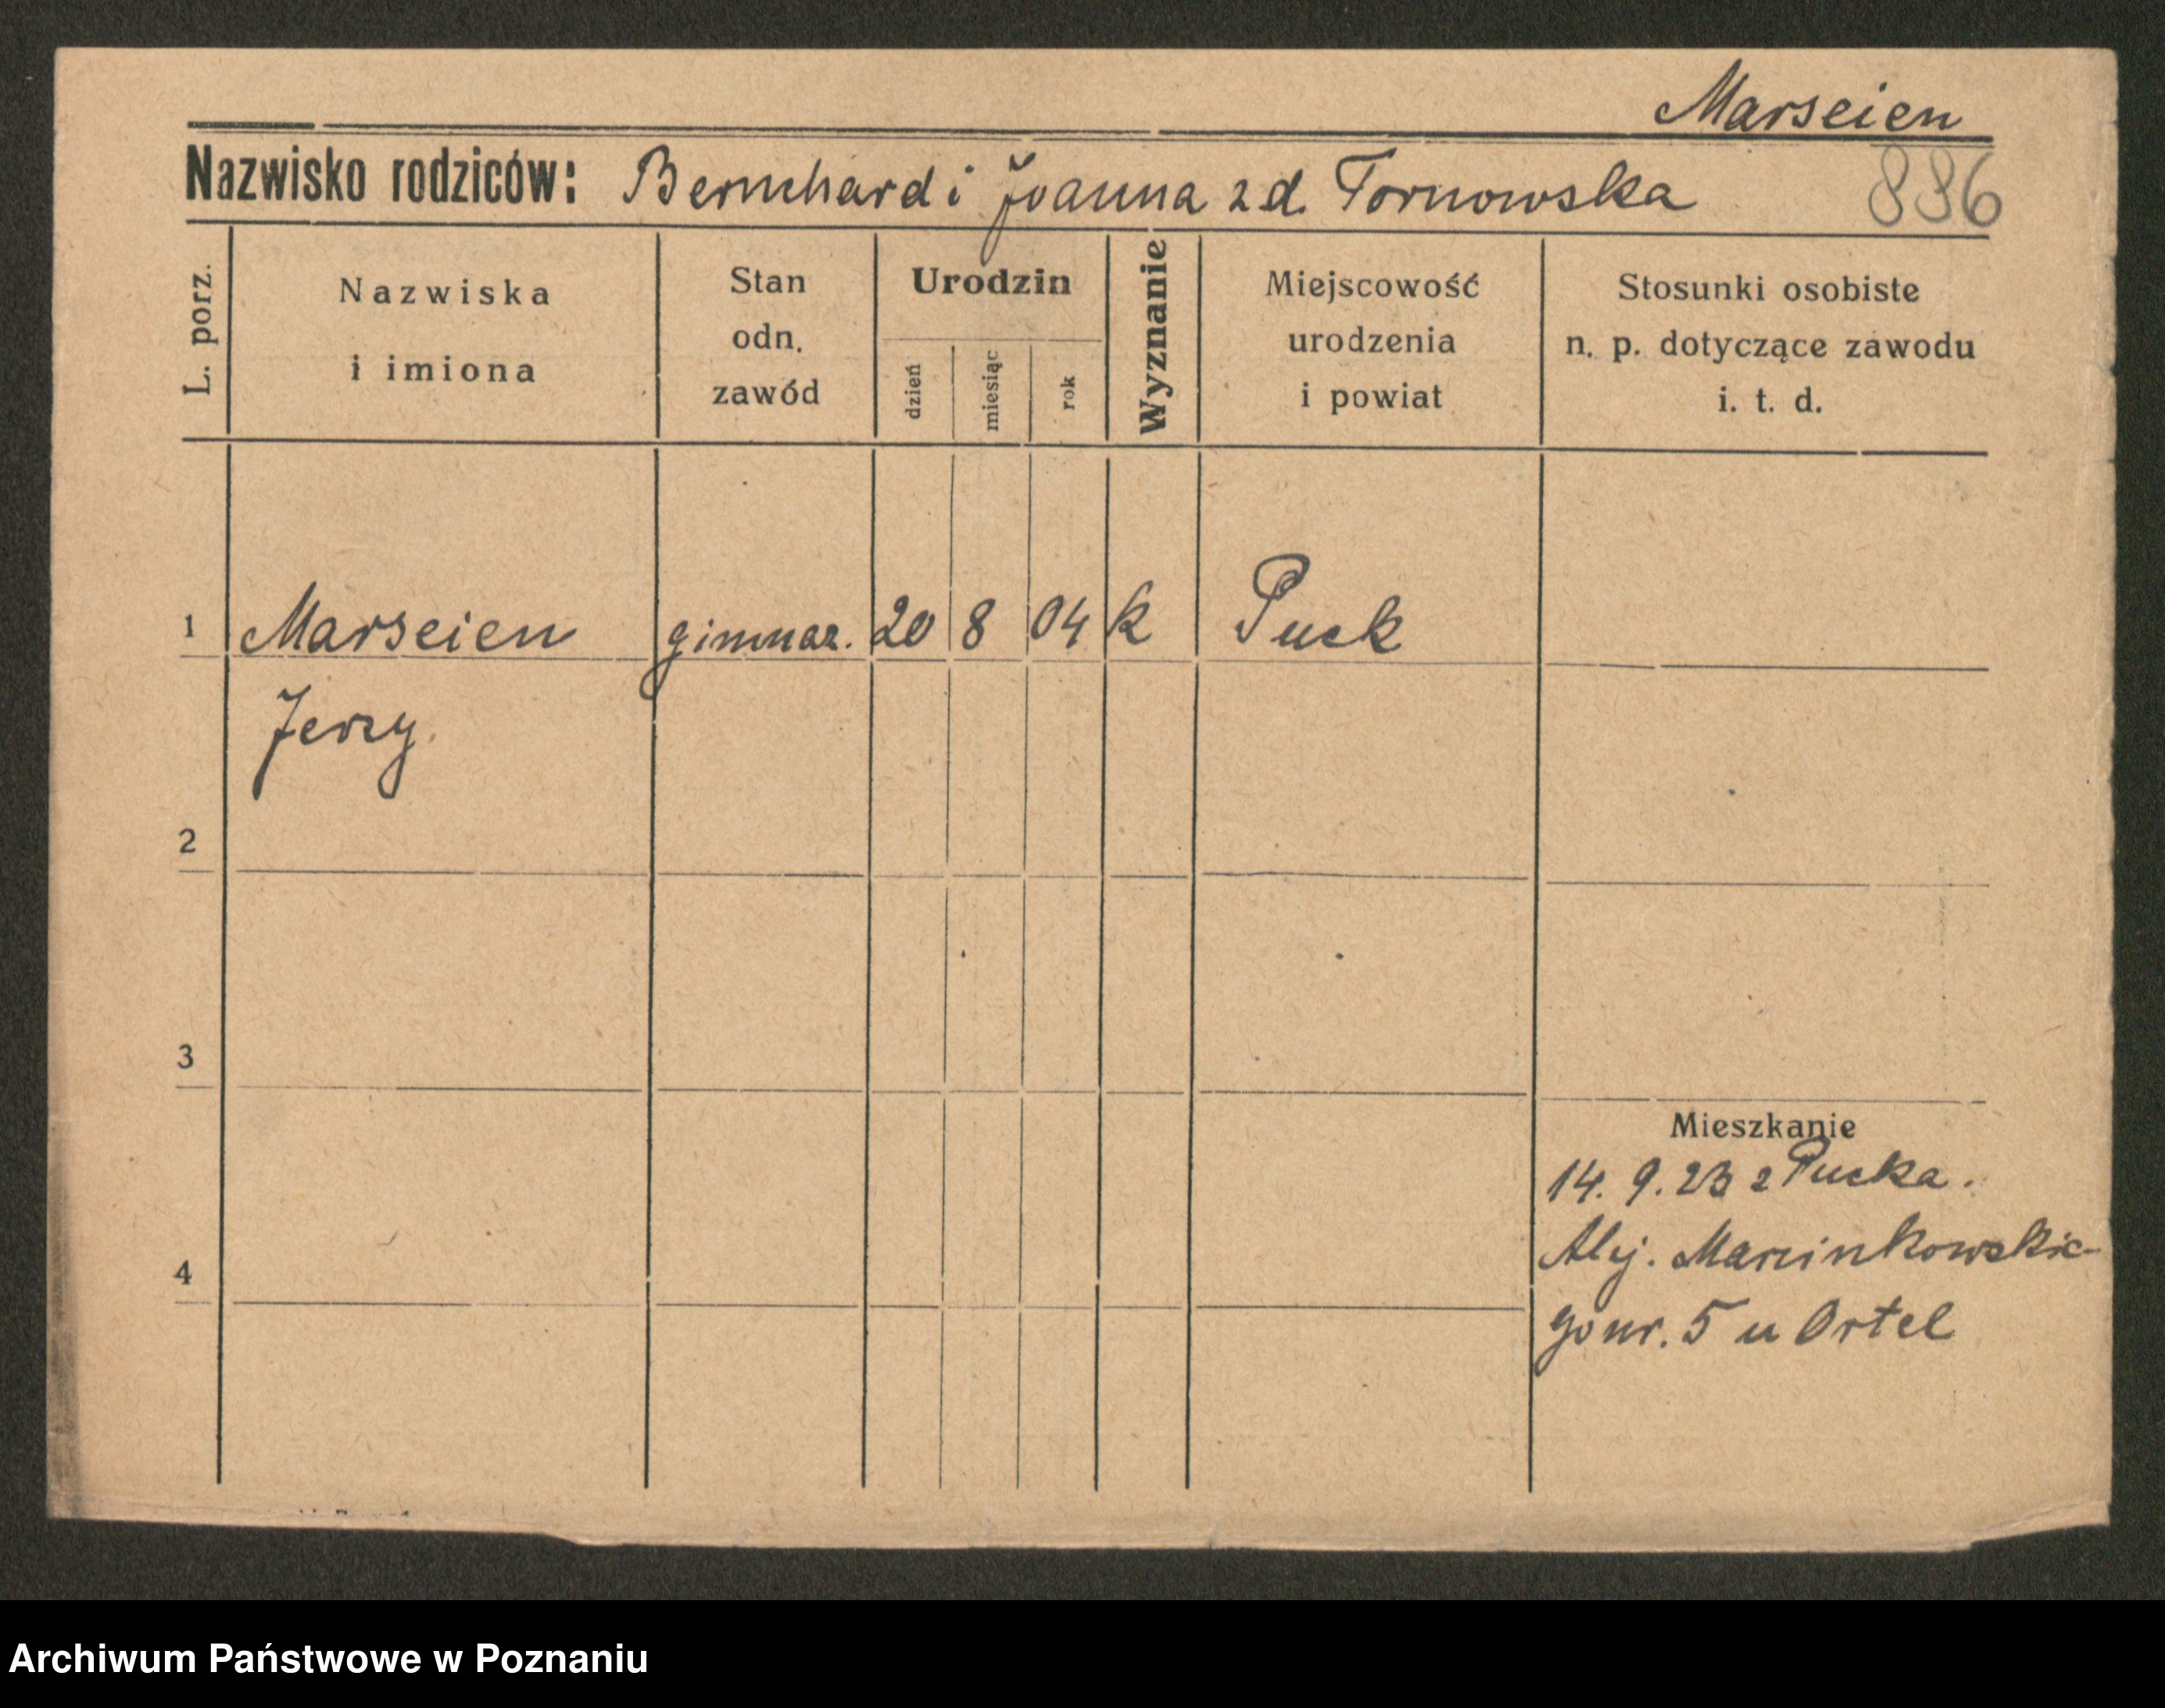 Marseien
Nazwisko rodziców: Bernhard i Joanna z d. Tornowska
886
L. porz.
Nazwiska
i imiona
Stan
odn.
zawód
Urodzin
dzień
miesiąc
rok
Wyznanie
Miejscowość
urodzenia
i powiat
Stosunki osobiste
n. p. dotyczące zawodu
i. t. d.
1 Marseien gimnaz. 20 8 04 k Puck
Jerzy.
2
3
Mieszkanie
14. 9. 23 z Pucka.
Alej. Marcinkowskie-
4
go nr. 5 u Ortel
Archiwum Państwowe w Poznaniu